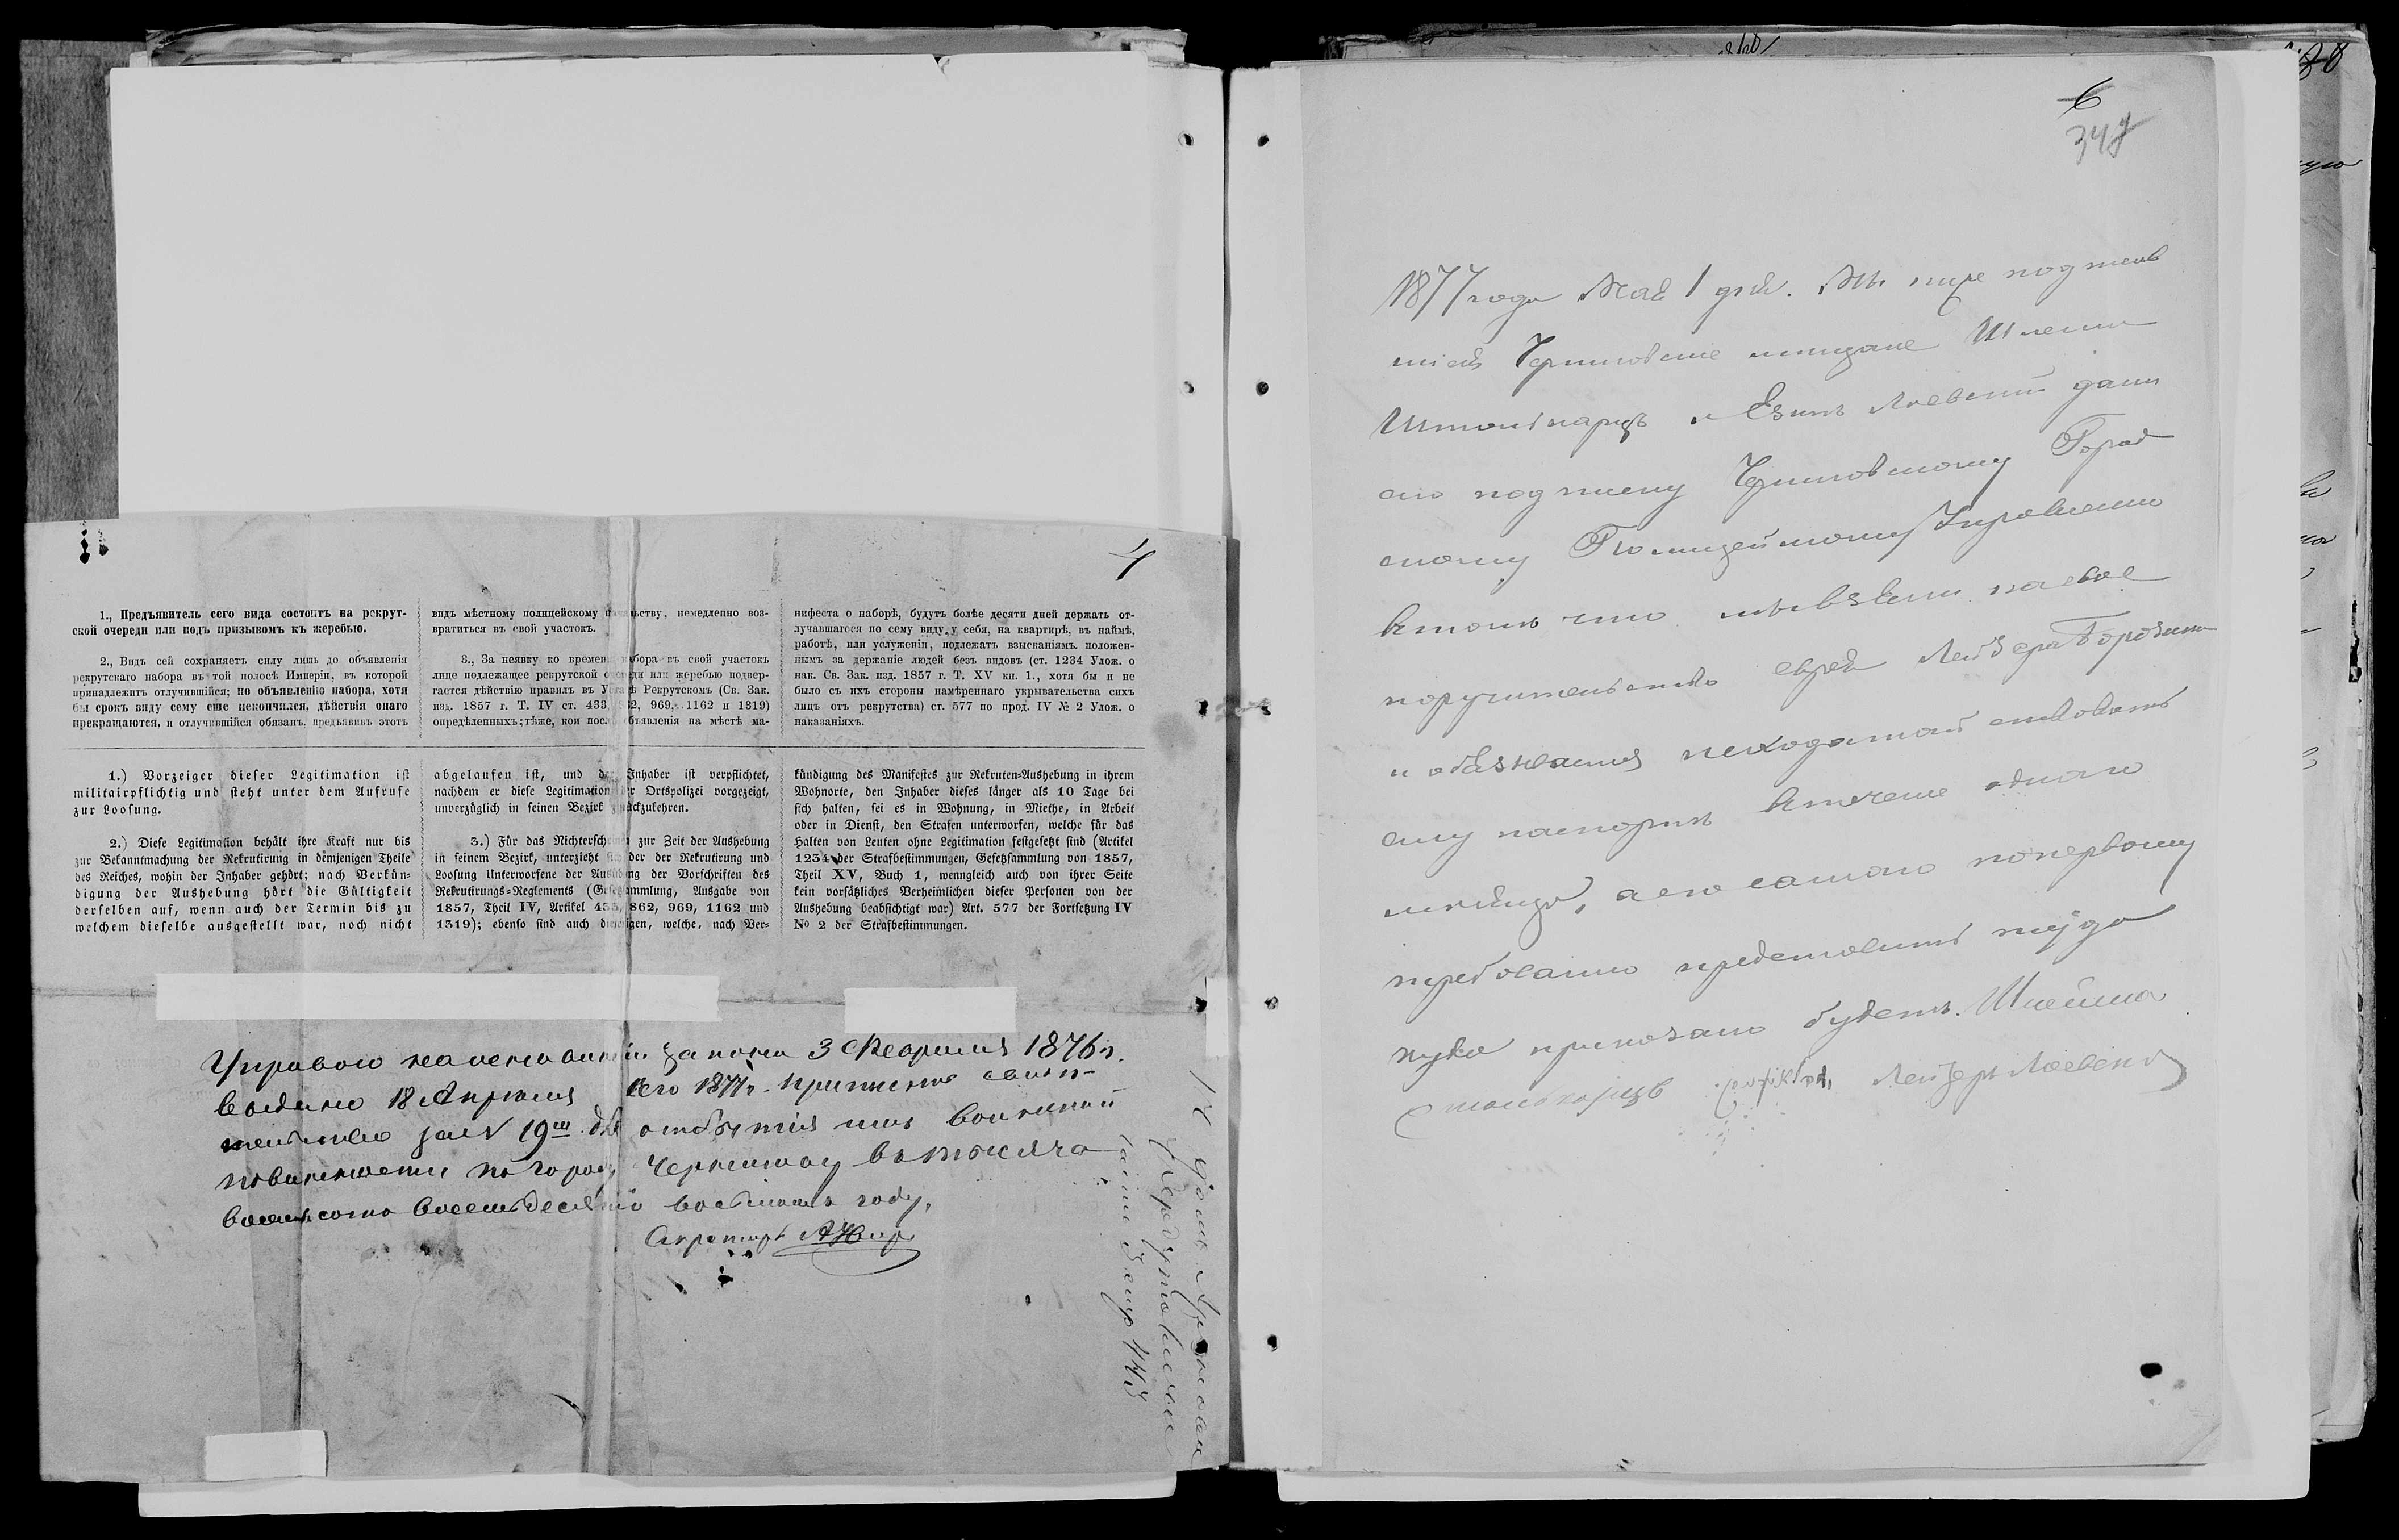 4
1., Предъявитель сего вида состоитъ на рекрут-
ской очереди или подъ призывомъ къ жеребью.
2., Видъ сей сохраняетъ силу лишь до объявленія
рекрутскаго набора въ той полосѣ Имперіи, въ которой
принадлежитъ отлучившійся; по объявленію набора, хотя
бы срокъ виду сему еще некончился, дѣйствія онаго
прекращаются, и отлучившійся обязанъ, предъявивъ этотъ
видъ мѣстному полицейскому начальству, немедленно воз-
вратиться въ свой участокъ.
3., За неявку ко времени набора въ свой участокъ
лице подлежащее рекрутской очереди или жеребью подвер-
гается дѣйствію правилъ въ Уставѣ Рекрутскомъ (Св. Зак.
изд. 1857 г. Т. IV ст. 433, 862, 969, 1162 и 1319)
опредѣленныхъ; тѣже, кои послѣ объявленія на мѣстѣ ма-
нифеста о наборѣ, будутъ болѣе десяти дней держать от-
лучавшагося по сему виду, у себя, на квартирѣ, въ наймѣ,
работѣ, или услуженіи, подлежатъ взысканіямъ. положен-
нымъ за держаніе людей безъ видовъ (ст. 1234 Улож. о
нак. Св. Зак. изд. 1857 г. Т. XV кн. 1., хотя бы и не
было съ ихъ стороны намѣреннаго укрывательства сихъ
лицъ отъ рекрутства) ст. 577 по прод. IV № 2 Улож. о
наказаніяхъ.
1.) Vorzeiger dieser Legitimation ist
militairpflichtig und steht unter dem Aufrufe
zur Loosung.
2.) Diese Legitimation behält ihre Kraft nur bis
zur Bekanntmachung der Rekrutirung in demjenigen Theile
des Reiches, wohin der Inhaber gehört; nach Verkün-
digung der Aushebung hört die Gültigkeit
derselben auf, wenn auch der Termin bis zu
welchem dieselbe ausgestellt war, noch nicht
abgelaufen ist, und der Inhaber ist verpflichtet,
nachdem er diese Legitimation der Ortspolizei vorgezeigt,
unverzüglich in seinen Bezirk zurückzukehren.
3.) Für das Nichterscheinen zur Zeit der Aushebung
in seinem Bezirk, unterzieht sich der der Rekrutirung und
Loosung Unterworfene der Ausübung der Vorschriften des
Rekrutirungs-Reglements (Gesetzsammlung, Ausgabe von
1857, Theil IV, Artikel 433, 862, 969, 1162 und
1319); ebenso sind auch diejenigen, welche, nach Ver-
kündigung des Manifestes zur Rekruten-Aushebung in ihrem
Wohnorte, den Inhaber dieses länger als 10 Tage bei
sich halten, sei es in Wohnung, in Miethe, in Arbeit
oder in Dienst, den Strafen unterworfen, welche für das
Halten von Leuten ohne Legitimation festgesetzt sind (Artikel
1234 der Strafbestimmungen, Gesetzsammlung von 1857,
Theil XV, Buch 1, wenngleich auch von ihrer Seite
kein vorsätzliches Verheimlichen dieser Personen von der
Aushebung beabsichtigt war) Art. 577 der Fortsetzung IV
No 2 der Strafbestimmungen.
Управою на основаніи закона 3 Февраля 1876 г.
выдано 18 Апрѣля сего 1877 г. приписное свидѣ-
тельство за № 19м объ отбытіи имъ воинской
повинности по городу Чернигову въ тысяча
восемьсотъ восемьдесятъ восьмомъ году.
Секретарь
6
347
1877 года Мая 1 дня. Мы ниже подписав
шіеся Черниговскіе мещане Шлема
и Езикъ Лоевскій дали
сію подписку Черниговскому Город
скому Полицейскому Управленію
втомъ что мы взяли на свое
поручительство еврея Лейзера
и обязываемся неходатайствовать
ему паспортъ втеченіе одного
месяца, а его самого по первому
требованію представить туда
куда приказано будетъ. Шлейма
Лейзеръ Лоевскій